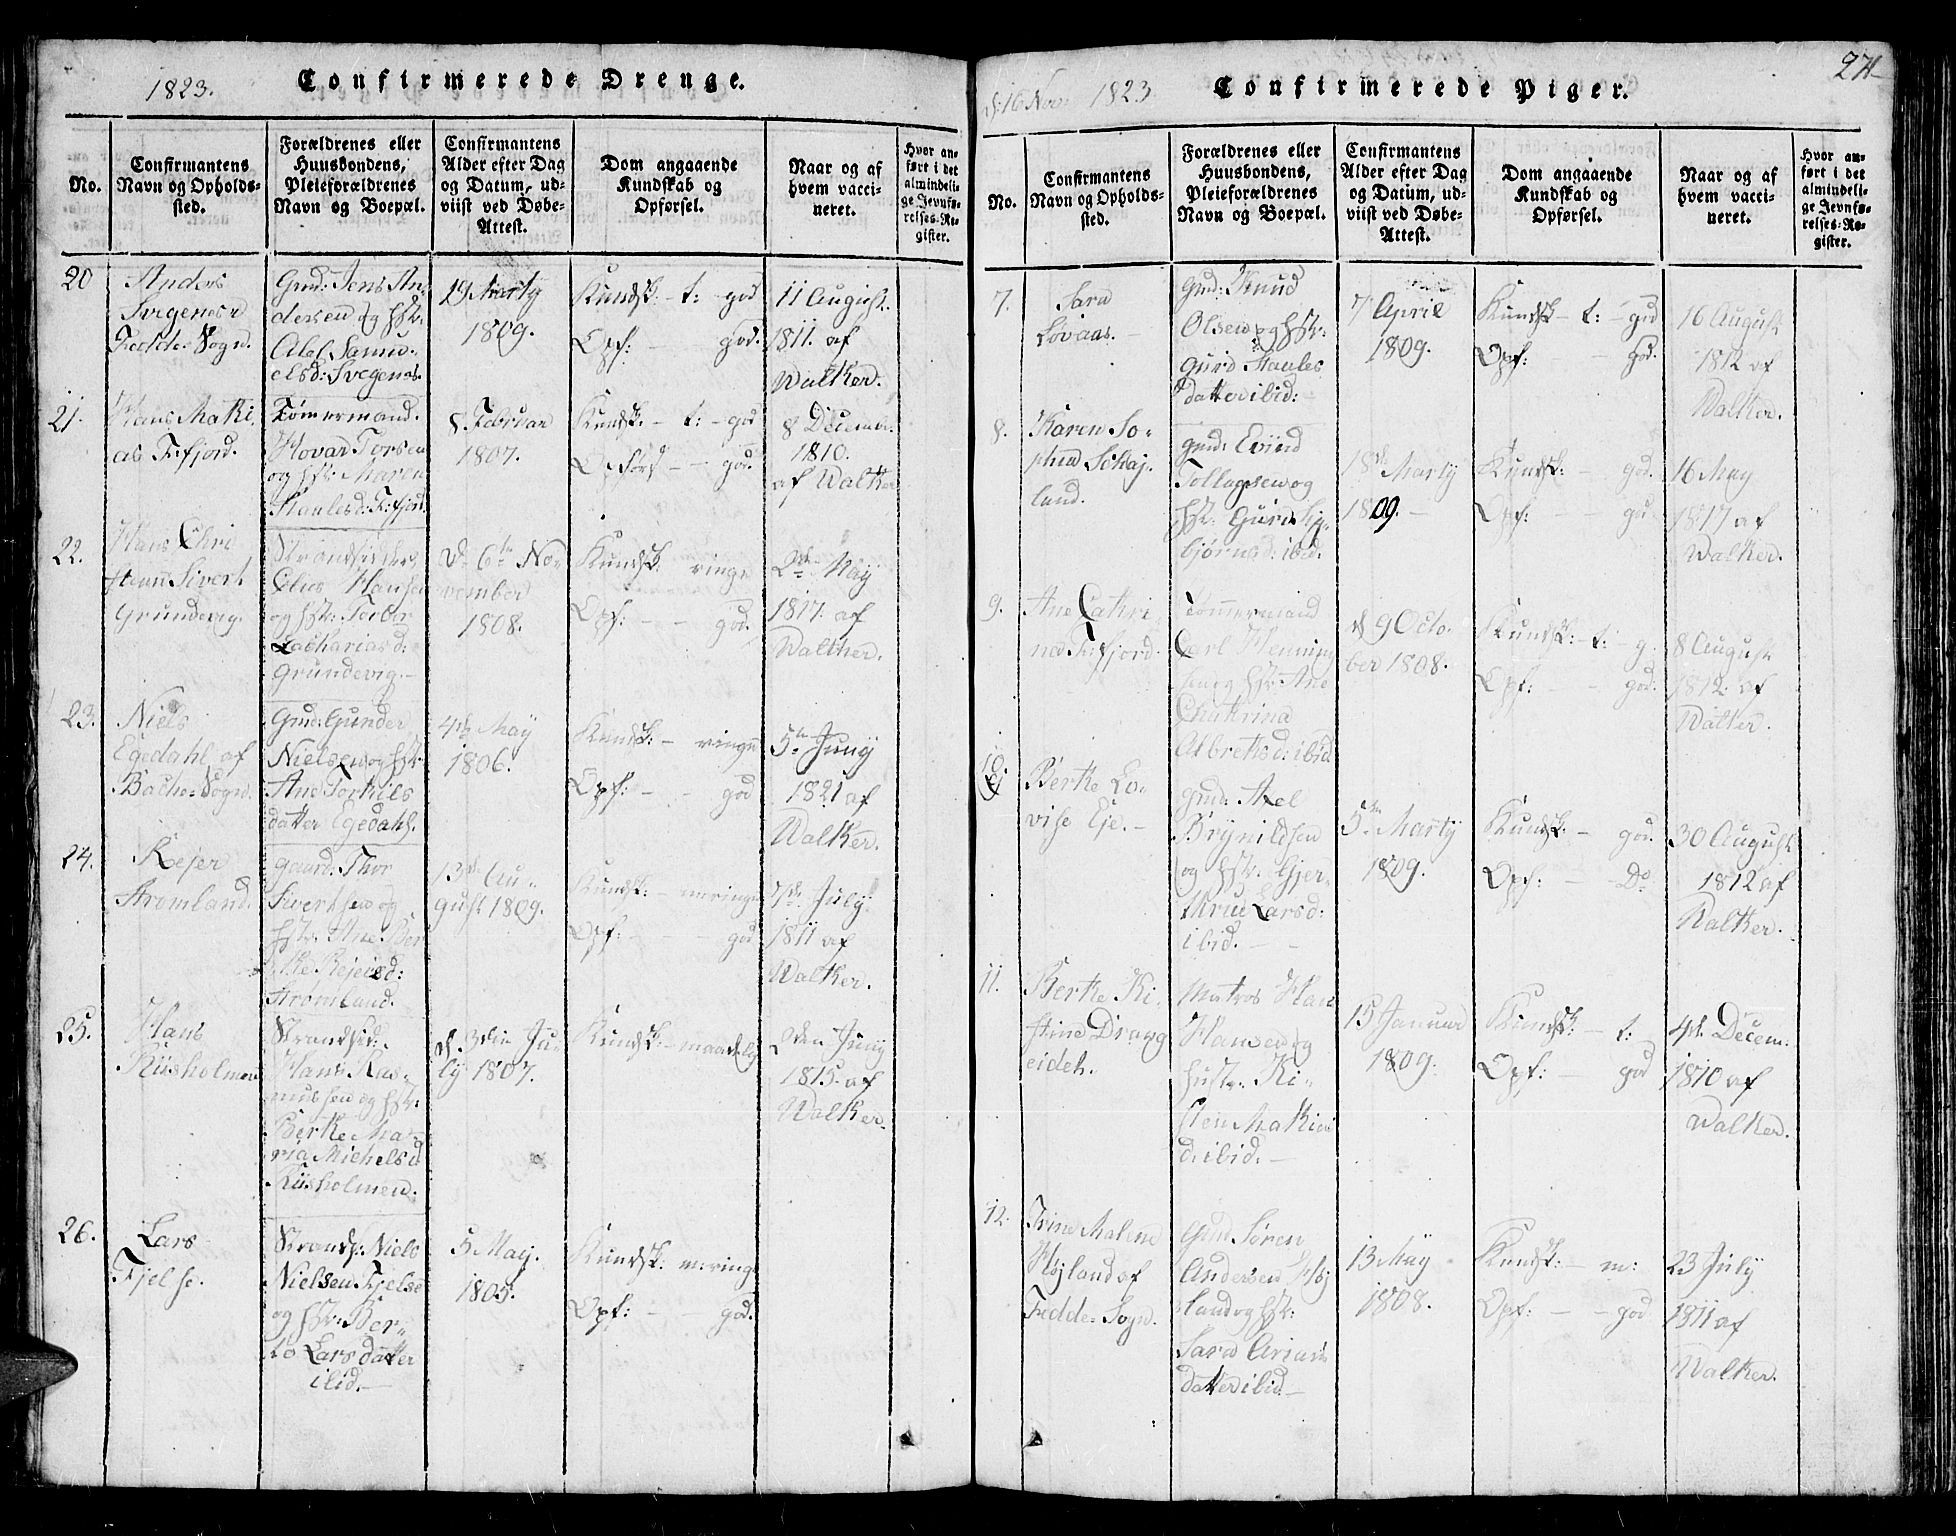 1823.
Confirmerede Drenge.
No.
Confirmantens
Navn og Opholds-
sted.
Forældrenes eller
Huusbondens,
Pleieforældrenes
Navn og Boepæl.
Confirmantens
Alder efter Dag
og Datum, ud-
viist ved Døbe-
Attest.
Dom angaaende
Kundskab og
Opførsel.
Naar og af
hvem vacci-
neret.
Hvor an-
ført i det
almindeli-
ge Jevnfø-
relses-Re-
gister.
20
Anders
Svegenes
Fedde Sogn.
Gmd: Jens An-
dersen og Hstr:
Samu-
elsd: Svegenes.
19 Marty
1809.
Kundsk: - t: - god
Opf: - god.
11 August
1811. af
Walker.
21.
Hans Mathi
as F:fjord.
Tømermand.
Hovar Torsen
og Hstr: Maren
Staalesd: F:fjord.
8. Februar
1807.
Kundsk: - t: - god
Opførs - - god.
8 Decembr:
1810.
af Walker
22.
Hans Chri
Sivert
Grundevig.
Strandsidder
Hansen
og Hstr:
Zachariasd:
Grundevig.
d. 6te No-
vember
1808.
Kundsk: ringe
Opf: - - god.
May
1817. af
Walker.
23.
Niels
Egedahl af
Bache Sogn.
Gmd: Gunder
Nielsen og Hstr
Ane Torkils
datter Egedahl.
4de May
1806.
Kundsk: - ringe
Opf: - - god
5te Juny
1821 af
Walker.
24.
Rejer
Strømland.
Gaard: Thor
Sivertsen og
Hstr: Ane Ber
the Rejersd:
Strømland.
13de Au-
gust 1809.
Kundsk: - m:ringe
Opf: - - - god
7de July
1811 af
Walker.
25.
Hans
Riisholmen
Strandsid:
Hans Ras-
mussen og Hstr:
Berthe Ma-
ria Michelsd
Riisholmen.
d. 3die Ju-
ly 1807.
Kundsk: - maadelig
2den Juny
1815. af
Walker.
26.
Lars
Fjelse.
Strands: Niels
Nielsen Fjelse
og Hstr: Ber-
Larsdatter
ibid. -
5 May.
1805.
Kundsk: m:ring
Opf: - god.
d: 16 Nov 1823
Confirmerede Piger.
271
No.
Confirmantens
Navn og Opholds-
sted.
Forældrenes eller
Huusbondens,
Pleieforældrenes
Navn og Boepæl.
Confirmantens
Alder efter Dag
og Datum, ud-
viist ved Døbe-
Attest.
Dom angaaende
Kundskab og
Opførsel.
Naar og af
hvem vacci-
neret.
Hvor an-
ført i det
almindeli-
ge Jevnfø-
relses-Re-
gister.
7.
Sara
Lovaas. -
Gmd: Knud
Olsen og Hstr:
Gurid Staales
datter ibid: -
7 April
1809.
Kundsk - t: - god
Opf: - god.
16 August
1812 af
Walker.
8.
Karen So-
phia Schaj-
land.
Gmd: Eviind
Tollagsen og
Hstr: Gurid Sig
bjørnsd: ibid.
18de Marty
1809. -
Kundsk: - god.
Opf: - - go.
16 May
1817 af
Walker.
9.
Ane Cathri
ne F:fjord.
Tømmermand
Carl Henning
sen og Hstr: Ane
Chatrina
Albretsd: ibid
d 9 Octo-
ber 1808.
Kundsk: - t: - g.
Opf: - - god.
8 August
1812. af
Walker.
10.
Berthe Lo-
vise Eje. -
Gmd: Axel
Brynildsen
og Hstr: Gjer-
thrue Larsd:
ibid. -
5te Marty
1809.
Kundsk: - god.
Opf: - - Do
30 August
1812 af
Walker.
11.
Berthe Ki-
stine Drang
eideh.
Matros Hans
Hansen og
Hustr: Ki-
sten Mathias
d: ibid. -
15 Januar
1809.
Kundsk: - t:
Opf: - god
4de Decem:
1810 af
Walker.
12.
Trine Malene
Højland af
Fedde Sogn.
Gmd Søren
Andersen Høj
land og Hstr:
Sara Arians
datter ibid -
13 May
1808.
Kundsk: - m:
Opf: - - god
23 July
1811 af
Walker.